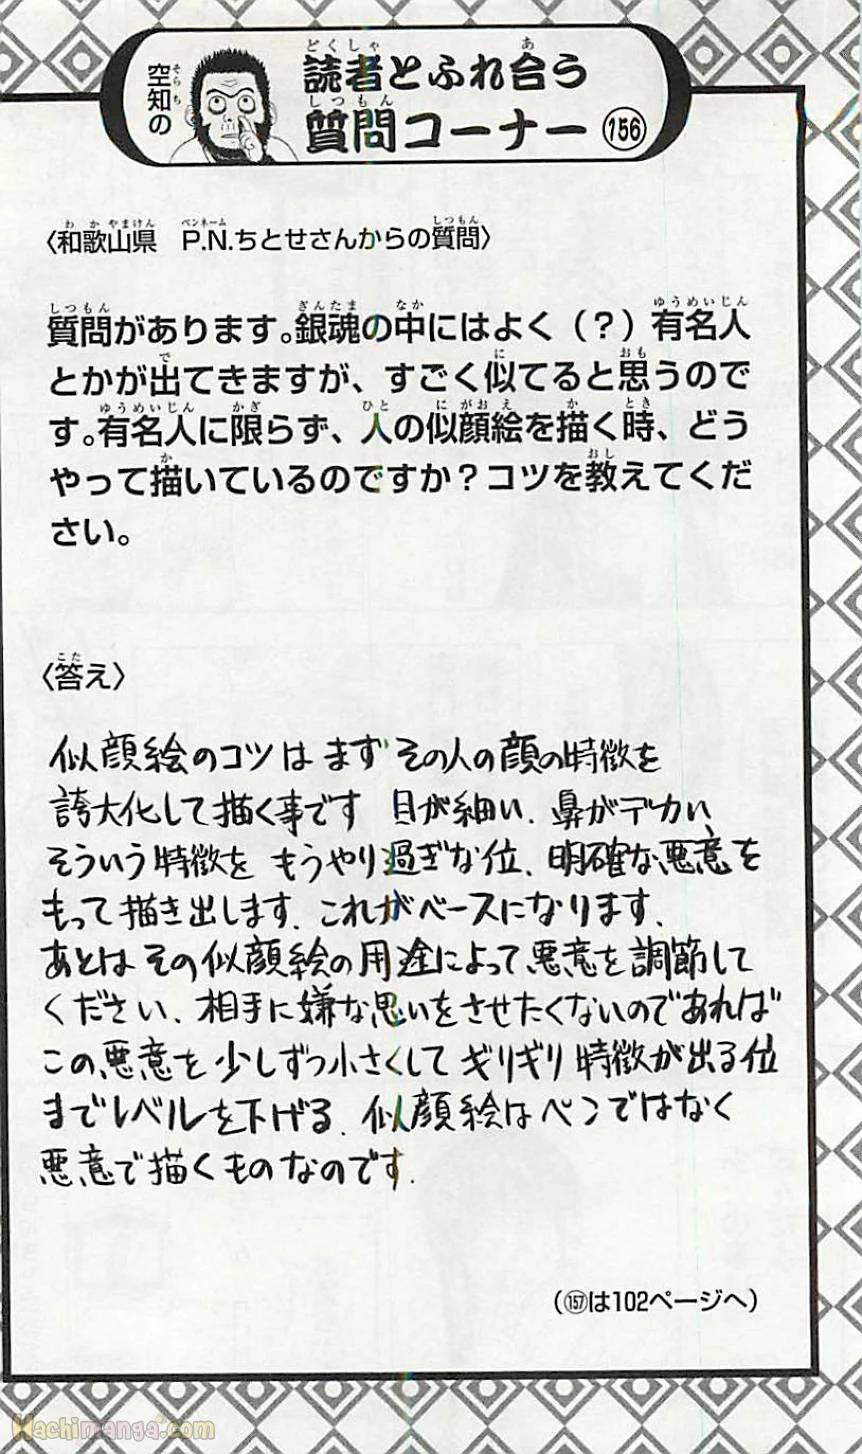 空知の
読者とふれ合う
質問コーナー 156
〈和歌山県　P.N.ちとせさんからの質問〉
質問があります。銀魂の中にはよく（？）有名人
とかが出てきますが、すごく似てると思うので
す。有名人に限らず、人の似顔絵を描く時、どう
やって描いているのですか？コツを教えてくだ
さい。
〈答え〉
似顔絵のコツは まず その人の顔の特徴を
誇大化して描く事です 目が細い、鼻がデカい、
そういう特徴を もうやり過ぎな位、明確な悪意を
もって描き出します、これがベースになります、
あとは その似顔絵の用途によって悪意を調節して
ください、相手に嫌な思いをさせたくないのであれば
この悪意を 少しずつ小さくして ギリギリ 特徴が出る位
までレベルを下げる、似顔絵はペンではなく
悪意で描くものなのです.
（157は102ページへ）
Hachimanga.com